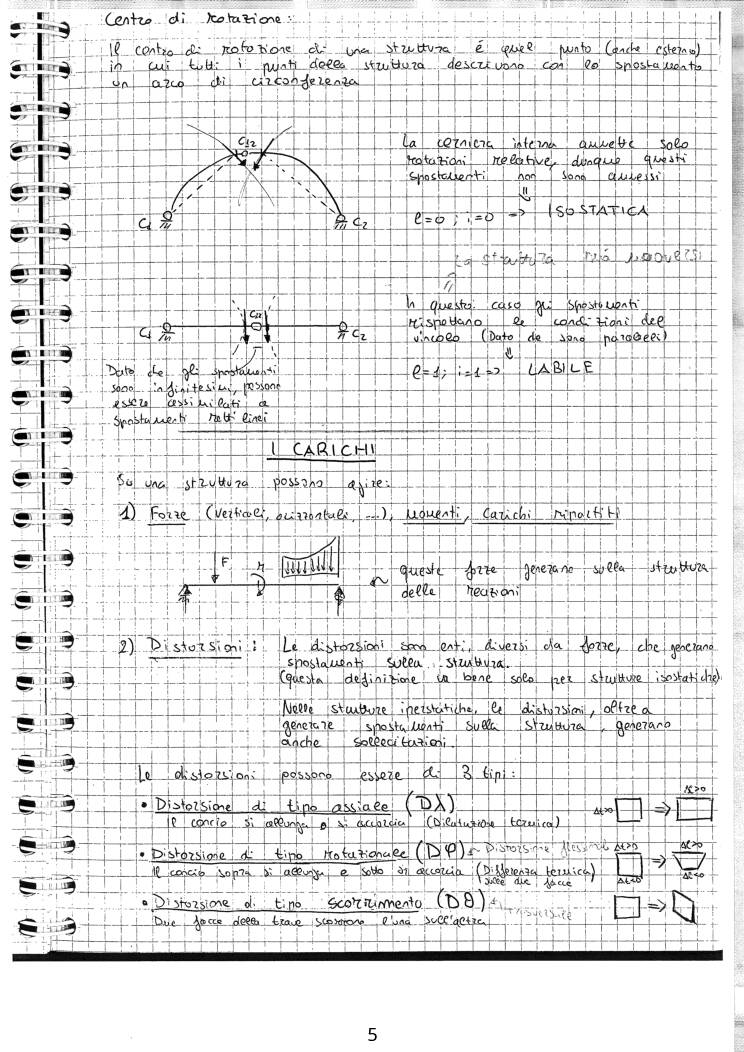 Centro di rotazione:
Il centro di rotazione di una struttura é quel punto (anche esterno)
in cui tutti i punti della struttura descrivono con lo spostamento
un arco di circonferenza
C12
C1
C2
La cerniera interna ammette solo
rotazioni relative, dunque questi
spostamenti non sono ammessi
⇓
l=0 ; i=0 => ISOSTATICA
La struttura può muoversi
C1
C12
C2
In questo caso gli spostamenti
rispettano le condizioni del
vincolo (Dato che sono paralleli)
⇓
l=1; i=1 => LABILE
Dato che gli spostamenti
sono infinitesimi, possono
essere assimilati a
spostamenti rettilinei
I CARICHI
Su una struttura possono agire:
1) Forze (Verticali, orizzontali, ...), Momenti, Carichi ripartiti
F
M
queste forze generano sulla struttura
delle reazioni
2) Distorsioni: Le distorsioni sono enti, diversi da forze, che generano
spostamenti sulla struttura.
(questa definizione va bene solo per strutture isostatiche)
Nelle strutture iperstatiche, le distorsioni, oltre a
generare spostamenti sulla struttura, generano
anche sollecitazioni.
Le distorsioni possono essere di 3 tipi:
• Distorsione di tipo assiale (Dλ)
Il concio si allunga o si accorcia (Dilatazione termica)
Δt>0 => Δt>0
• Distorsione di tipo Rotazionale (Dφ) Distorsione flessionale
Il concio sopra si allunga e sotto si accorcia (Differenza termica)
sulle due facce
Δt>0 => Δt>0
Δt<0 Δt<0
• Distorsione di tipo scorrimento (Dθ)
Due facce della trave scorrono l'una sull'altra
=>
5